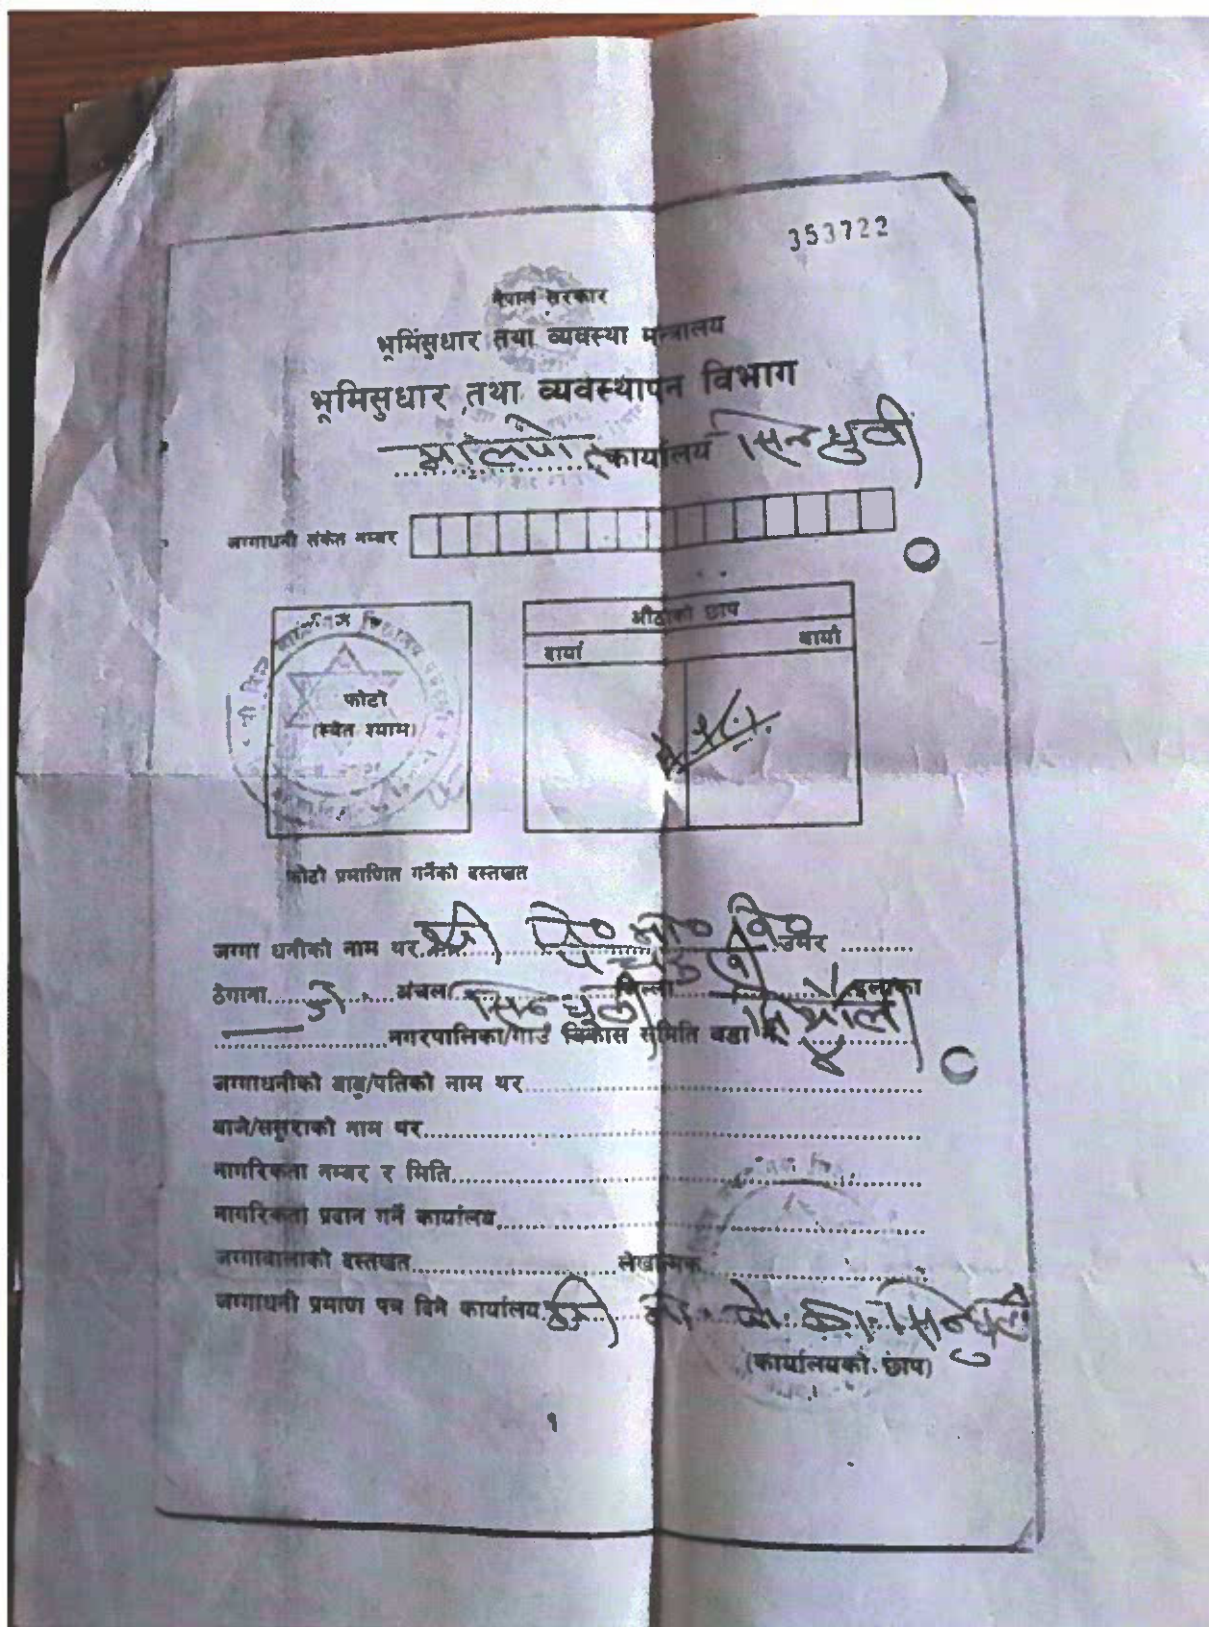 353722
नेपाल सरकार
भूमिसुधार तथा व्यवस्था मन्त्रालय
भूमिसुधार तथा व्यवस्थापन विभाग
मालपोत कार्यालय सिन्धुली
जग्गाधनी संकेत नम्बर
औंठाको छाप
दायाँ बायाँ
फोटो
(स्वेत श्याम)
फोटो प्रमाणित गर्नेको दस्तखत
जग्गा धनीको नाम थर श्री उमेर
ठेगाना अंचल सिन्धुली जिल्ला इलाका
नगरपालिका/गाउँ विकास समिति वडा नं. ४
जग्गाधनीको बाबु/पतिको नाम थर
बाजे/ससुराको नाम थर
नागरिकता नम्बर र मिति
नागरिकता प्रदान गर्ने कार्यालय
जग्गावालाको दस्तखत लेखात्मक
जग्गाधनी प्रमाण पत्र दिने कार्यालय श्री मा. पो. का. सिन्धुली
(कार्यालयको छाप)
१